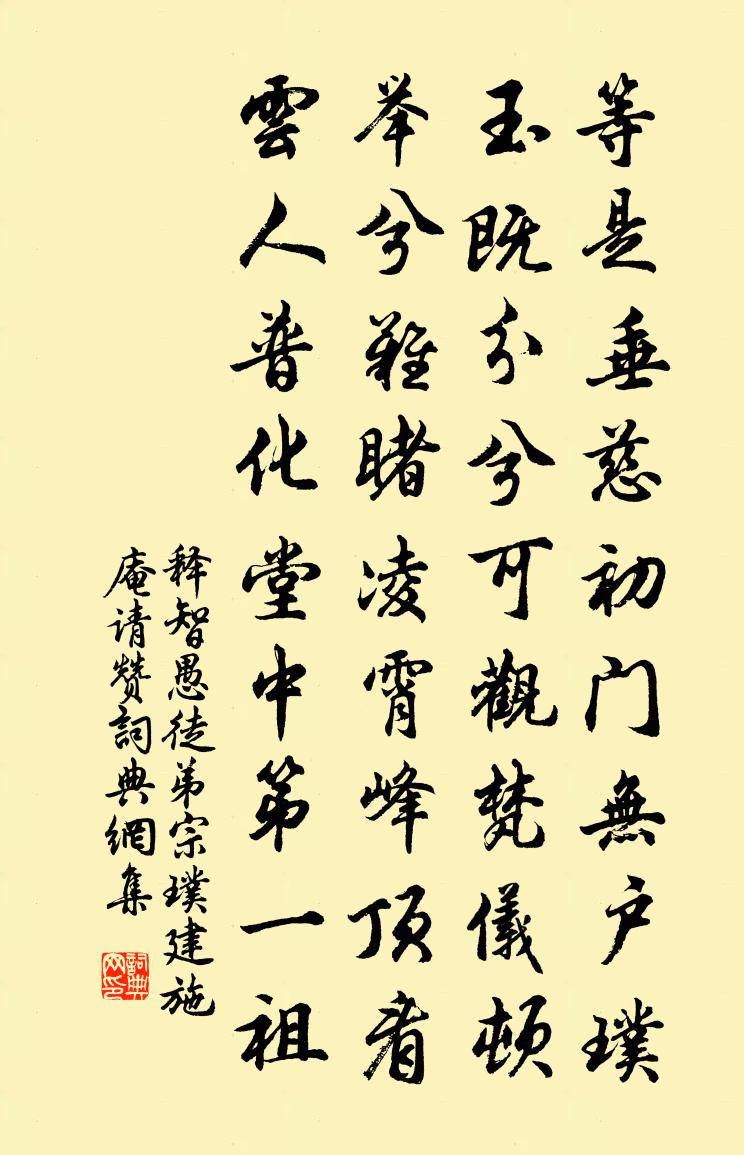 等是垂慈初門無户璞
玉既分兮可觀梵儀頓
举兮難睹凌霄峰頂看
雲人普化堂中第一祖
释智愚徒弟宗璞建施
庵请赞詞典網集
詞典网印